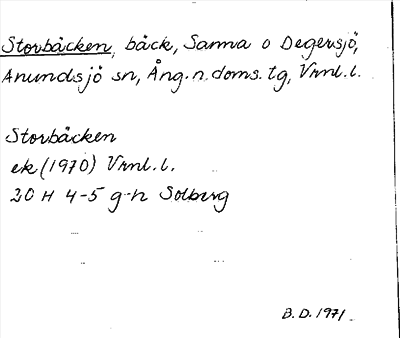 Storbäcken, bäck, Sanna o Degersjö,
Anundsjö sn, Ång. n. doms. tg, Vrml. l.
Storbäcken
ek (1970) Vrml. l.
20 H 4-5 g-h Solberg
B. D. 1971